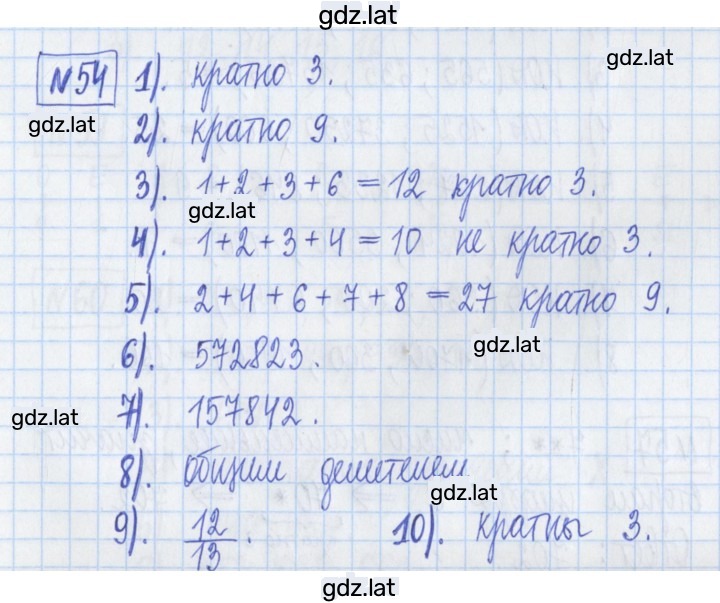 gdz.lat
gdz.lat
№54 1). кратно 3.
gdz.lat
2). кратно 9.
3). 1+2+3+6=12 кратно 3.
gdz.lat
4). 1+2+3+4=10 не кратно 3.
5). 2+4+6+7+8=27 кратно 9.
gdz.lat
6). 572823.
gdz.lat
7). 157842.
8). общим делителем
gdz.lat
9). 12/13. 10). кратны 3.
gdz.lat